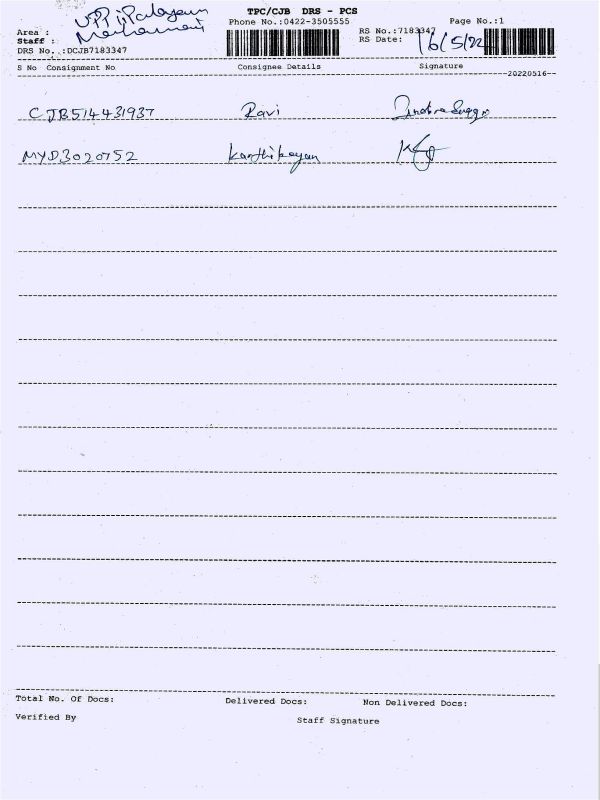 TPC/CJB DRS - PCS
Phone No.:0422-3505555
Page No.:1
Area :
Staff :
DRS No..:DCJB7183347
RS No.:7183347
RS Date: 16/5/22
S No Consignment No Consignee Details Signature
20220516
CJB514431937 Ravi
MYD3020752 Karthikeyan
Total No. Of Docs: Delivered Docs: Non Delivered Docs:
Verified By Staff Signature